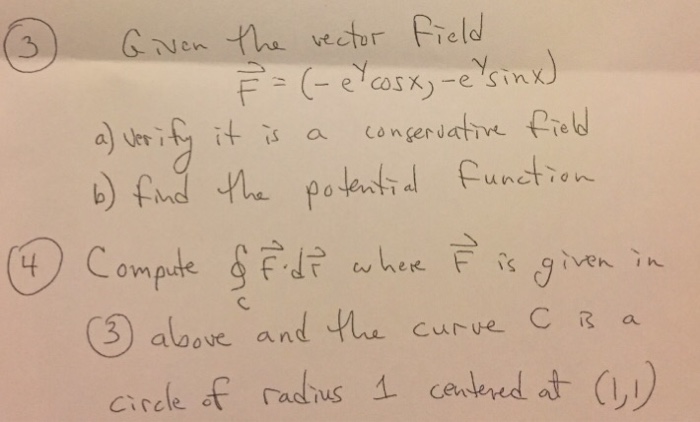 ③ Given the vector field
F⃗ = (-e^y cosx, -e^y sinx)
a) verify it is a conservative field
b) find the potential function
④ Compute ∮_C F⃗·dr⃗ where F⃗ is given in
③ above and the curve C is a
circle of radius 1 centered at (1,1)